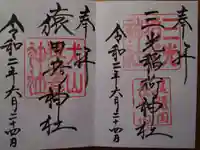 奉拝
三光稲荷神社
令和二年六月二十四日
奉拝
猿田彦神社
犬山
令和二年六月二十四日